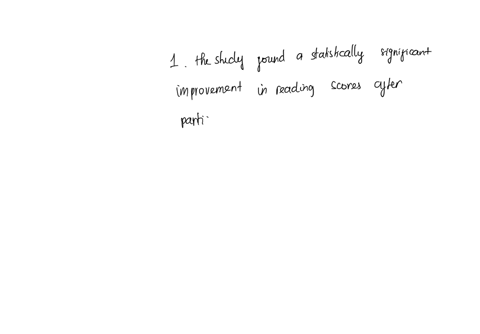 1. the study found a statistically significant
improvement in reading scores after
parti